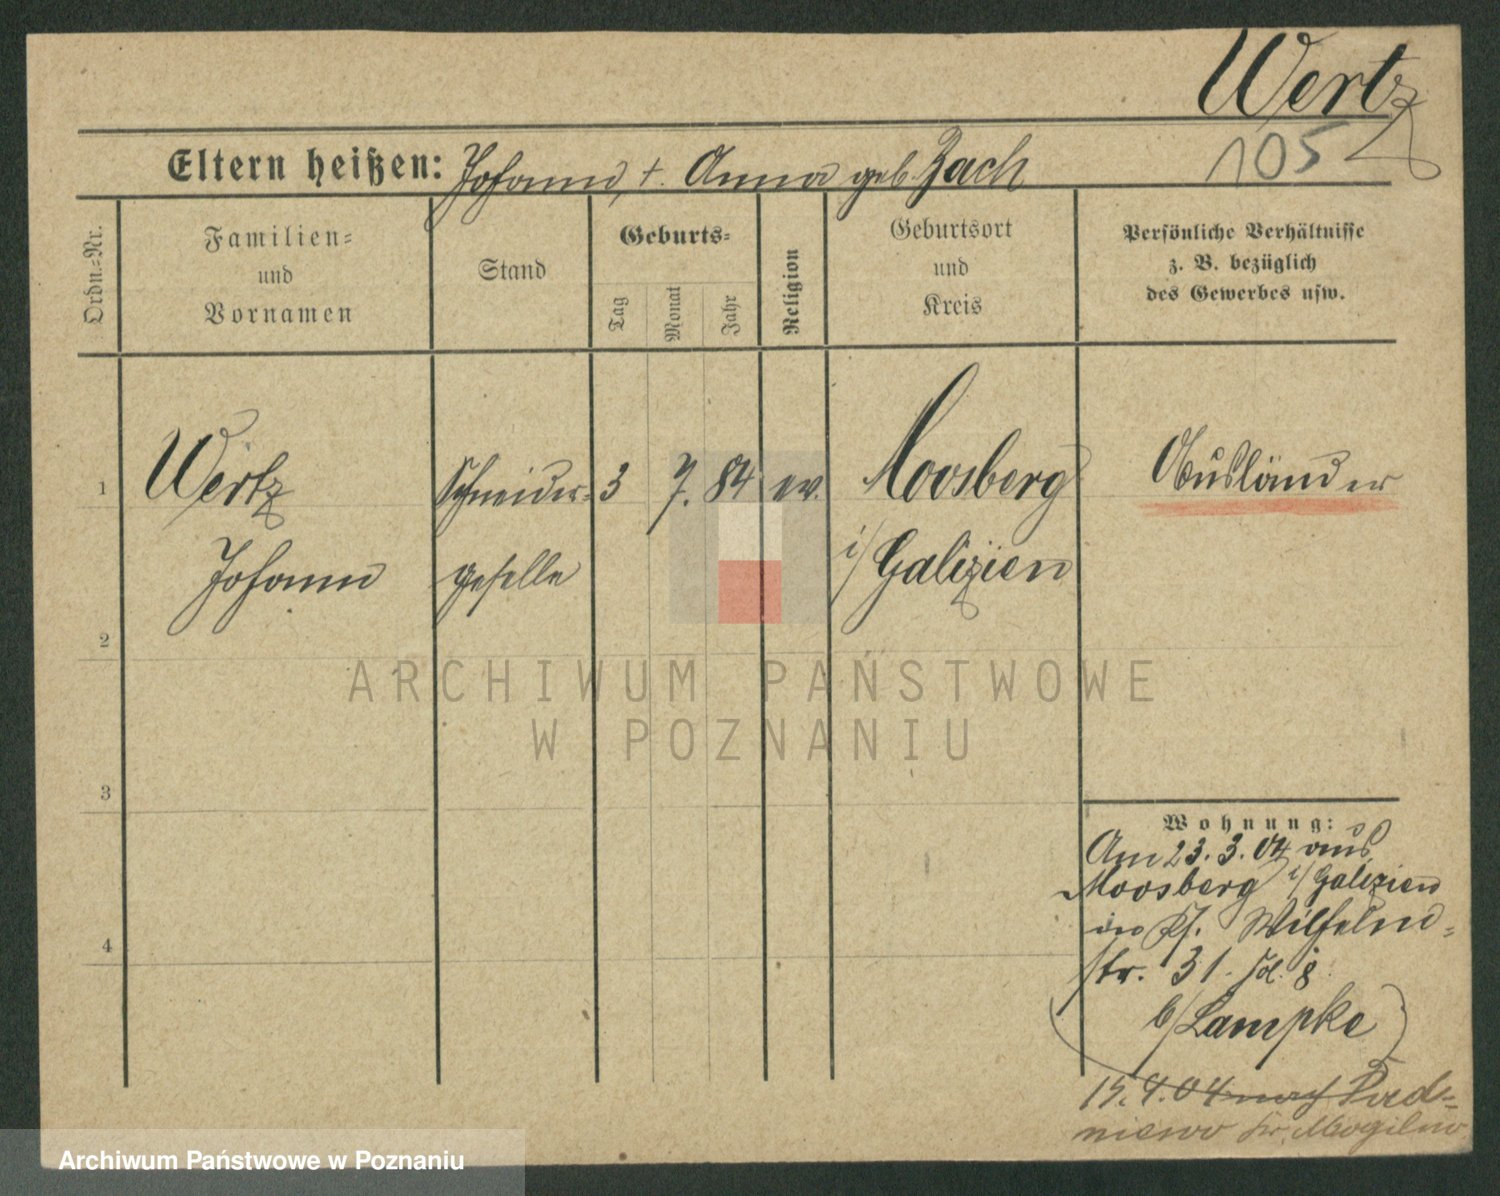 Wertz
105
Eltern heißen: Johann, +. Anna geb. Zach
Ordn.-Nr.
Familien-
und
Vornamen
Stand
Geburts-
Tag
Monat
Jahr
Religion
Geburtsort
und
Kreis
Persönliche Verhältnisse
z. B. bezüglich
des Gewerbes usw.
1
Wertz
Johann
Schneider-
geselle
3
7.
84
ev.
Moosberg
i/Galizien
Ausländer
2
3
4
Wohnung:
Am 23.3.04 aus
Moosberg i/Galizien
in Wilhelm-
str. 31. 8
b/Lampke
15.4.04 nach
Kr. Mogilno
ARCHIWUM PAŃSTWOWE
W POZNANIU
Archiwum Państwowe w Poznaniu